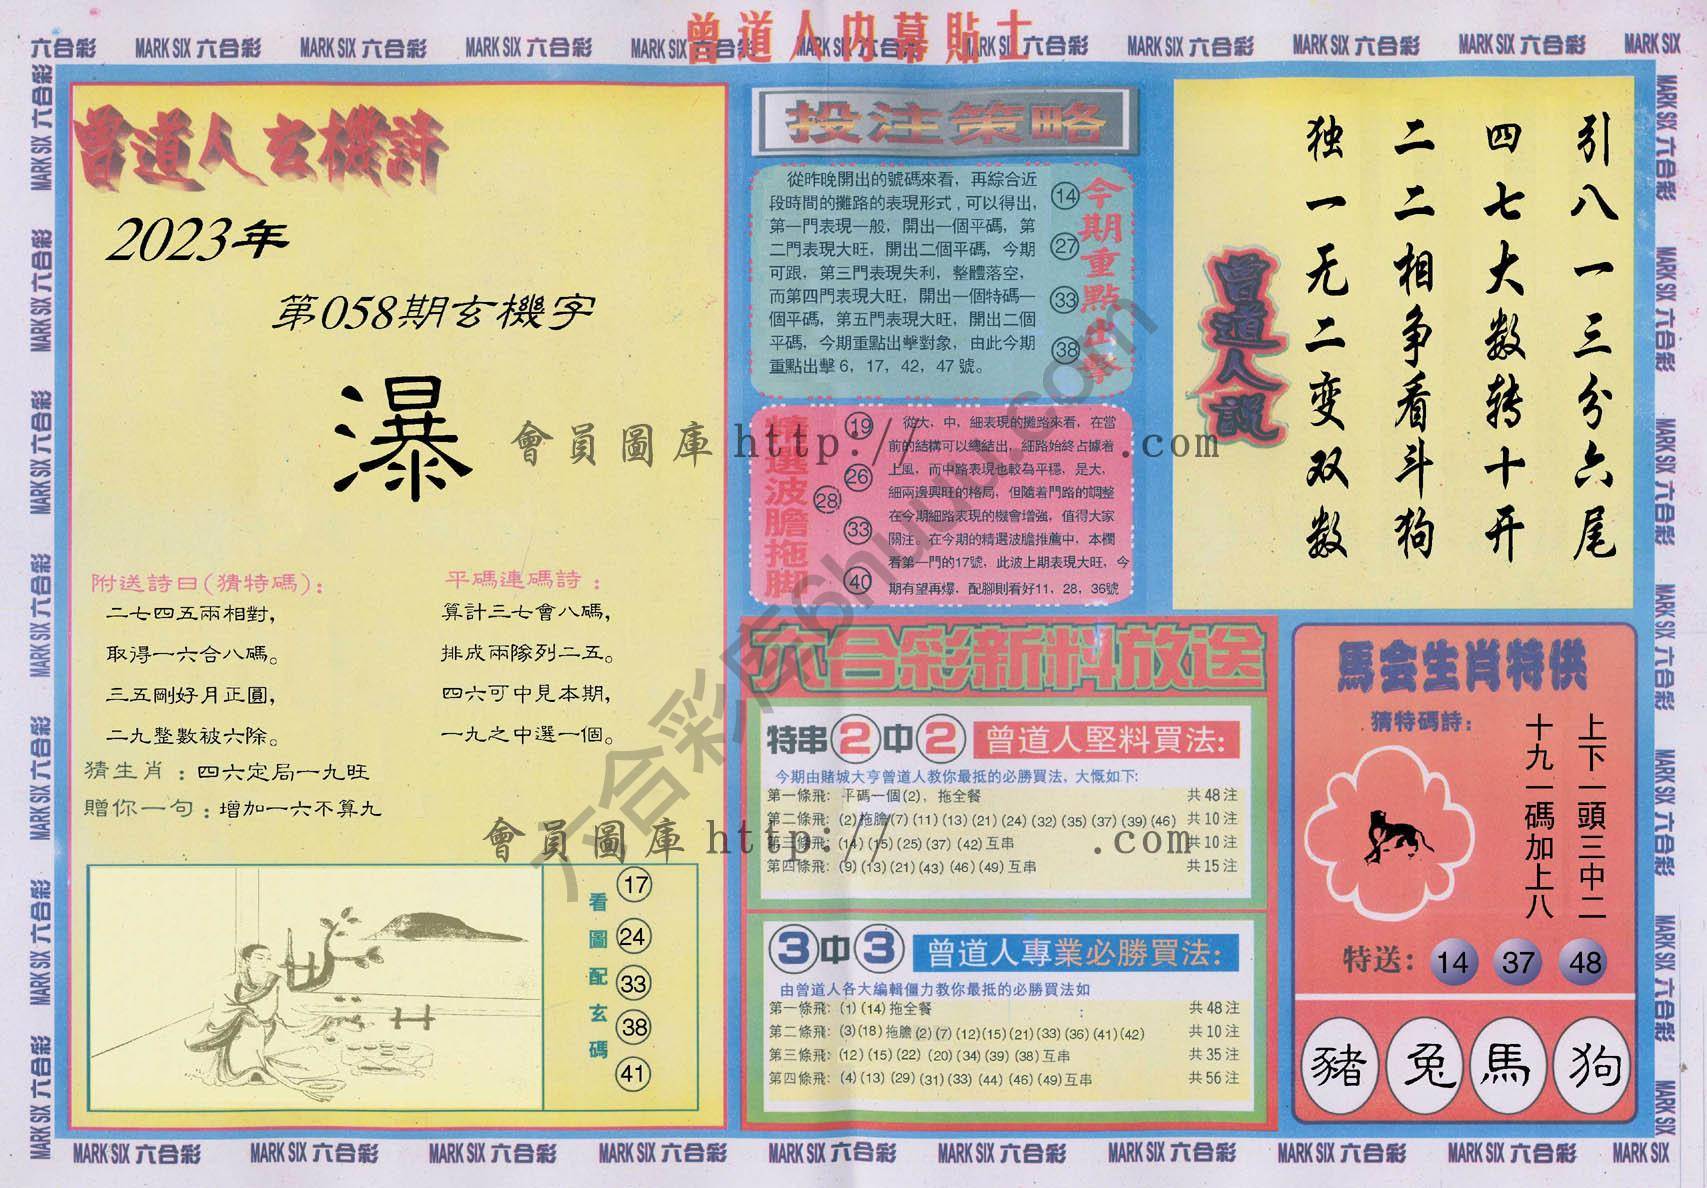 曾道人内幕貼士
六合彩 MARK SIX 六合彩 MARK SIX 六合彩 MARK SIX 六合彩 MARK SIX 六合彩 MARK SIX 六合彩 MARK SIX 六合彩 MARK SIX 六合彩 MARK SIX 六合彩 MARK SIX 六合彩 MARK SIX
曾道人玄機詩
2023年
第058期玄機字
瀑
附送詩曰(猜特碼)：
二七四五兩相對，
取得一六合八碼。
三五剛好月正圓，
二九整數被六除。
平碼連碼詩：
算計三七會八碼，
排成兩隊列二五。
四六可中見本期，
一九之中選一個。
猜生肖：四六定局一九旺
贈你一句：增加一六不算九
看圖配玄碼
17
24
33
38
41
投注策略
從昨晚開出的號碼來看，再綜合近
段時間的攤路的表現形式，可以得出，
第一門表現一般，開出一個平碼，第
二門表現大旺，開出二個平碼，今期
可跟，第三門表現失利，整體落空，
而第四門表現大旺，開出一個特碼一
個平碼，第五門表現大旺，開出二個
平碼，今期重點出擊對象，由此今期
重點出擊 6，17，42，47 號。
14
27
33
38
今期重點出擊
精選波膽拖脚
19
26
28
33
40
從大，中，細表現的攤路來看，在當
前的結構可以總結出，細路始終占據着
上風，而中路表現也較為平穩，是大，
細兩邊興旺的格局，但隨着門路的調整
在今期細路表現的機會增強，值得大家
關注。在今期的精選波膽推薦中，本欄
看第一門的17號，此波上期表現大旺，今
期有望再爆，配腳則看好11，28，36號
六合彩新料放送
特串2中2 曾道人堅料買法：
今期由賭城大亨曾道人教你最抵的必勝買法，大慨如下：
第一條飛：平碼一個(2)，拖全餐 共48注
第二條飛：(2)拖膽(7)(11)(13)(21)(24)(32)(35)(37)(39)(46) 共10注
第三條飛：(14)(15)(25)(37)(42)互串 共10注
第四條飛：(9)(13)(21)(43)(46)(49)互串 共15注
3中3 曾道人專業必勝買法：
由曾道人各大編輯僵力教你最抵的必勝買法如
第一條飛：(1)(14)拖全餐 共48注
第二條飛：(3)(18)拖膽(2)(7)(12)(15)(21)(33)(36)(41)(42) 共10注
第三條飛：(12)(15)(22)(20)(34)(39)(38)互串 共35注
第四條飛：(4)(13)(29)(31)(33)(44)(46)(49)互串 共56注
引八一三分六尾
四七大数转十开
二二相争看斗狗
独一无二变双数
曾道人説
馬会生肖特供
猜特碼詩：
上下一頭三中二
十九一碼加上八
特送：14 37 48
豬 兔 馬 狗
會員圖庫 http:// .com
會員圖庫 http:// .com
MARK SIX 六合彩 MARK SIX 六合彩 MARK SIX 六合彩 MARK SIX 六合彩 MARK SIX 六合彩 MARK SIX 六合彩 MARK SIX 六合彩 MARK SIX 六合彩 MARK SIX 六合彩 MARK SIX